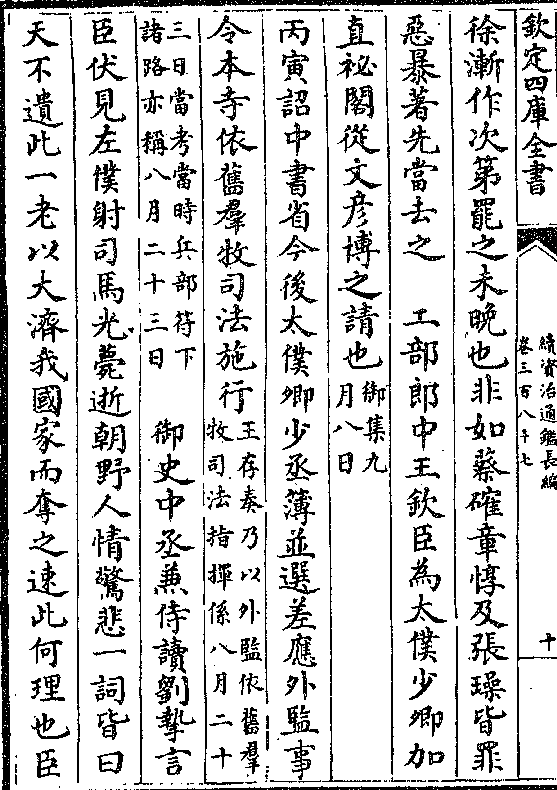 欽定四庫全書
續資治通鑑長編
卷三百八十七
十
徐漸作次第罷之未晚也非如蔡確章惇及張璪皆罪
惡暴著先當去之　工部郎中王欽臣為太僕少卿加
直祕閣從文彦博之請也御集九
月八日
丙寅詔中書省今後太僕卿少丞薄並選差應外監事
令本寺依舊羣牧司法施行王存奏乃以外監依舊羣
牧司法指揮係八月二十
三日當考當時兵部符下
諸路亦稱八月二十三日　御史中丞兼侍讀劉摯言
臣伏見左僕射司馬光薨逝朝野人情驚悲一詞皆曰
天不遺此一老以大濟我國家而奪之速此何理也臣